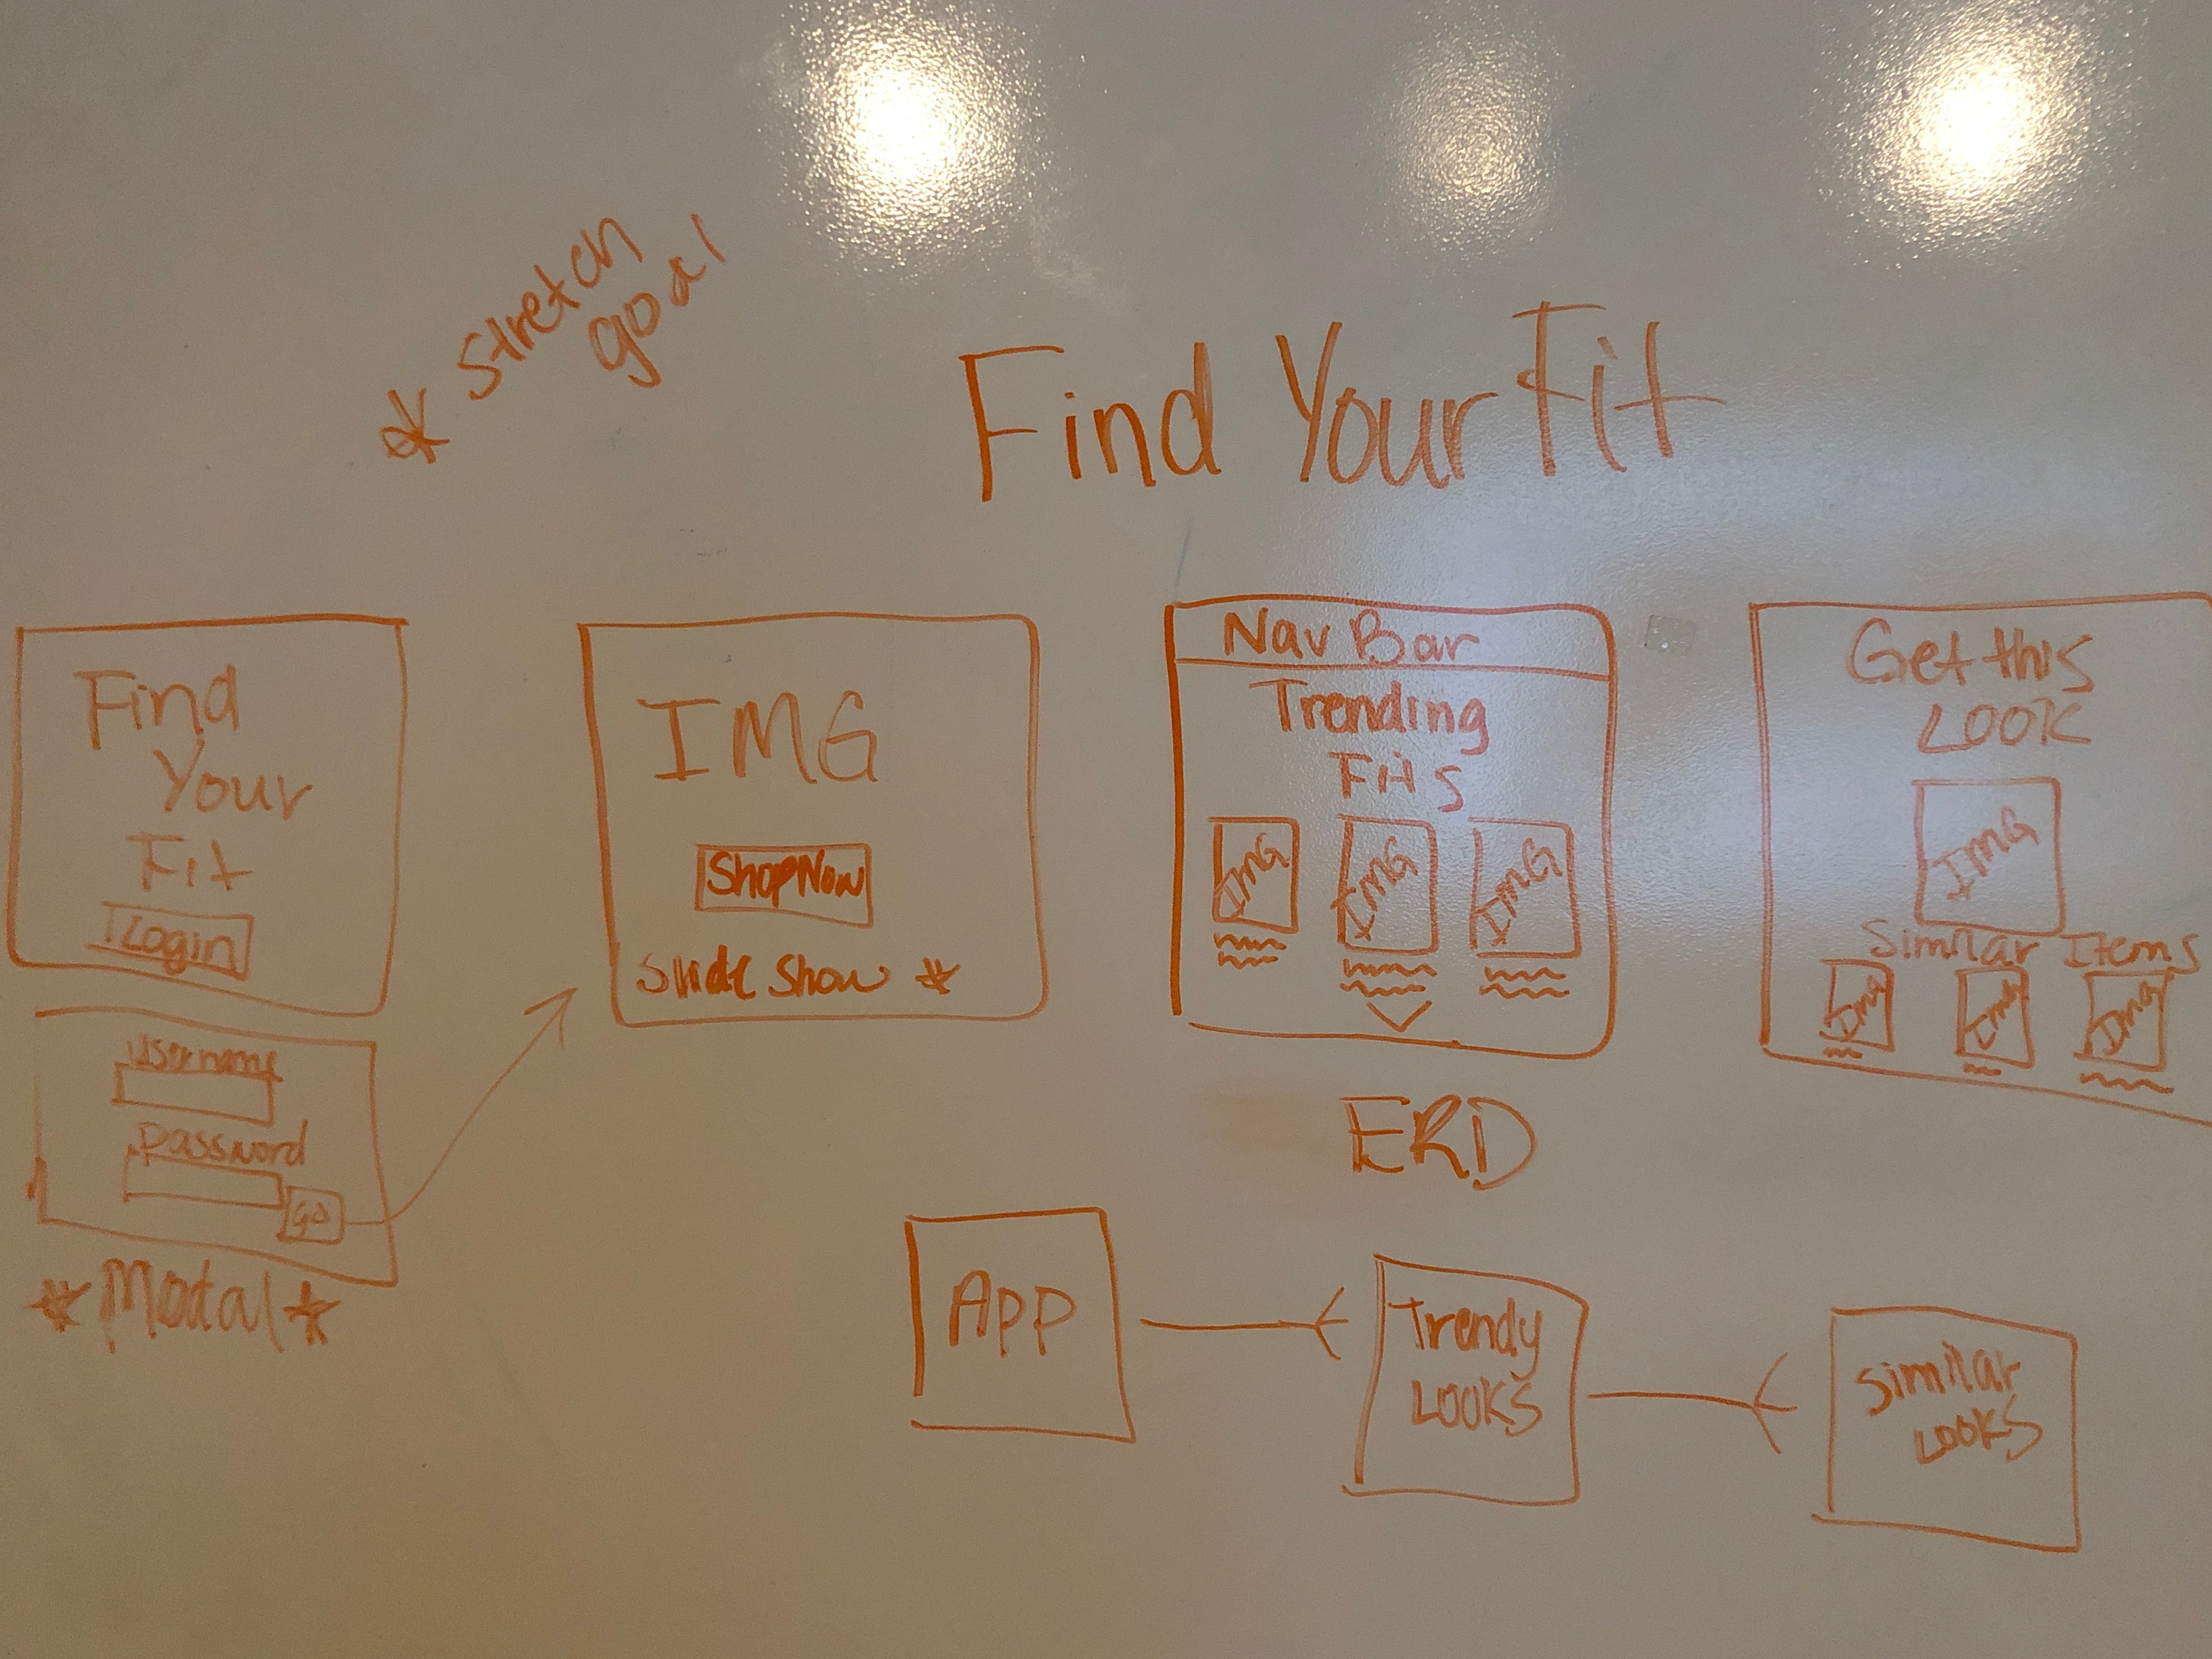 * Stretch
goal
Find Your Fit
Find
Your
Fit
Login
username
password
GO
* Modal *
IMG
Shop Now
Slide Show *
Nav Bar
Trending
Fits
IMG IMG IMG
Get this
LOOK
IMG
Similar Items
Img Img Img
ERD
App
Trendy
LOOKS
Similar
LOOKS